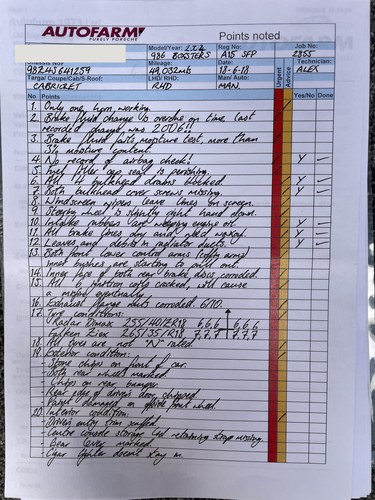 AUTOFARM
PURELY PORSCHE
Points noted
Model/Year: 2.7 4
986 BOXSTERS
Reg No:
A15 SFP
Job No:
2855
98ZUS641259
Mileage:
49,032mls
Date:
18-6-18
Technician:
ALEX
Targa/Coupe/Cab/S-Roof:
CABRIOLET
RHD/LHD:
RHD
Man/Auto:
MAN.
Urgent
Advice
No. Points
Yes/No Done
1. Only one horn working.
2. Brake fluid change is overdue on time last
recorded change was 2006!!
3. Brake fluid fails moisture test, more than
3% moisture content.
4. No record of airbag check! Y
5. Fuel filler cap seal is perishing.
6. All 4 bulkhead drains blocked. Y
7. Both bulkhead cover screws missing. Y
8. Windscreen wipers leave lines on screen.
9. Steering wheel is slightly right hand down.
10. Intake rubbers are weeping engine oil Y
11. All brake lines dry and need waxing. Y
12. Leaves and debris in radiator ducts. Y
13. Both front lower control arms (coffin arms)
inner bushes are starting to split out.
14. Inner face of both rear brake discs corroded.
15. All 6 ignition coils cracked, will cause
a misfire eventually.
16. Exhaust flange nuts corroded. 6/10.
17. Tyre condition:
Radar Dimax 255/40/ZR18 6,6,6 6,6,6
Falken Ziex 265/35/ZR18 7,7,7 7,7,7
18. All tyres are not "N" rated.
19. Exterior condition:
- Stone chips on front of car.
- Both rear wheels marked.
- Chips on rear bumper.
- Rear edge of drivers door chipped.
- Paint damaged on offside front wheel.
20. Interior condition:
- Drivers entry trim scuffed.
- Centre console storage lid retaining strap missing.
- Gear lever marked.
- Cigar lighter doesn't stay in.